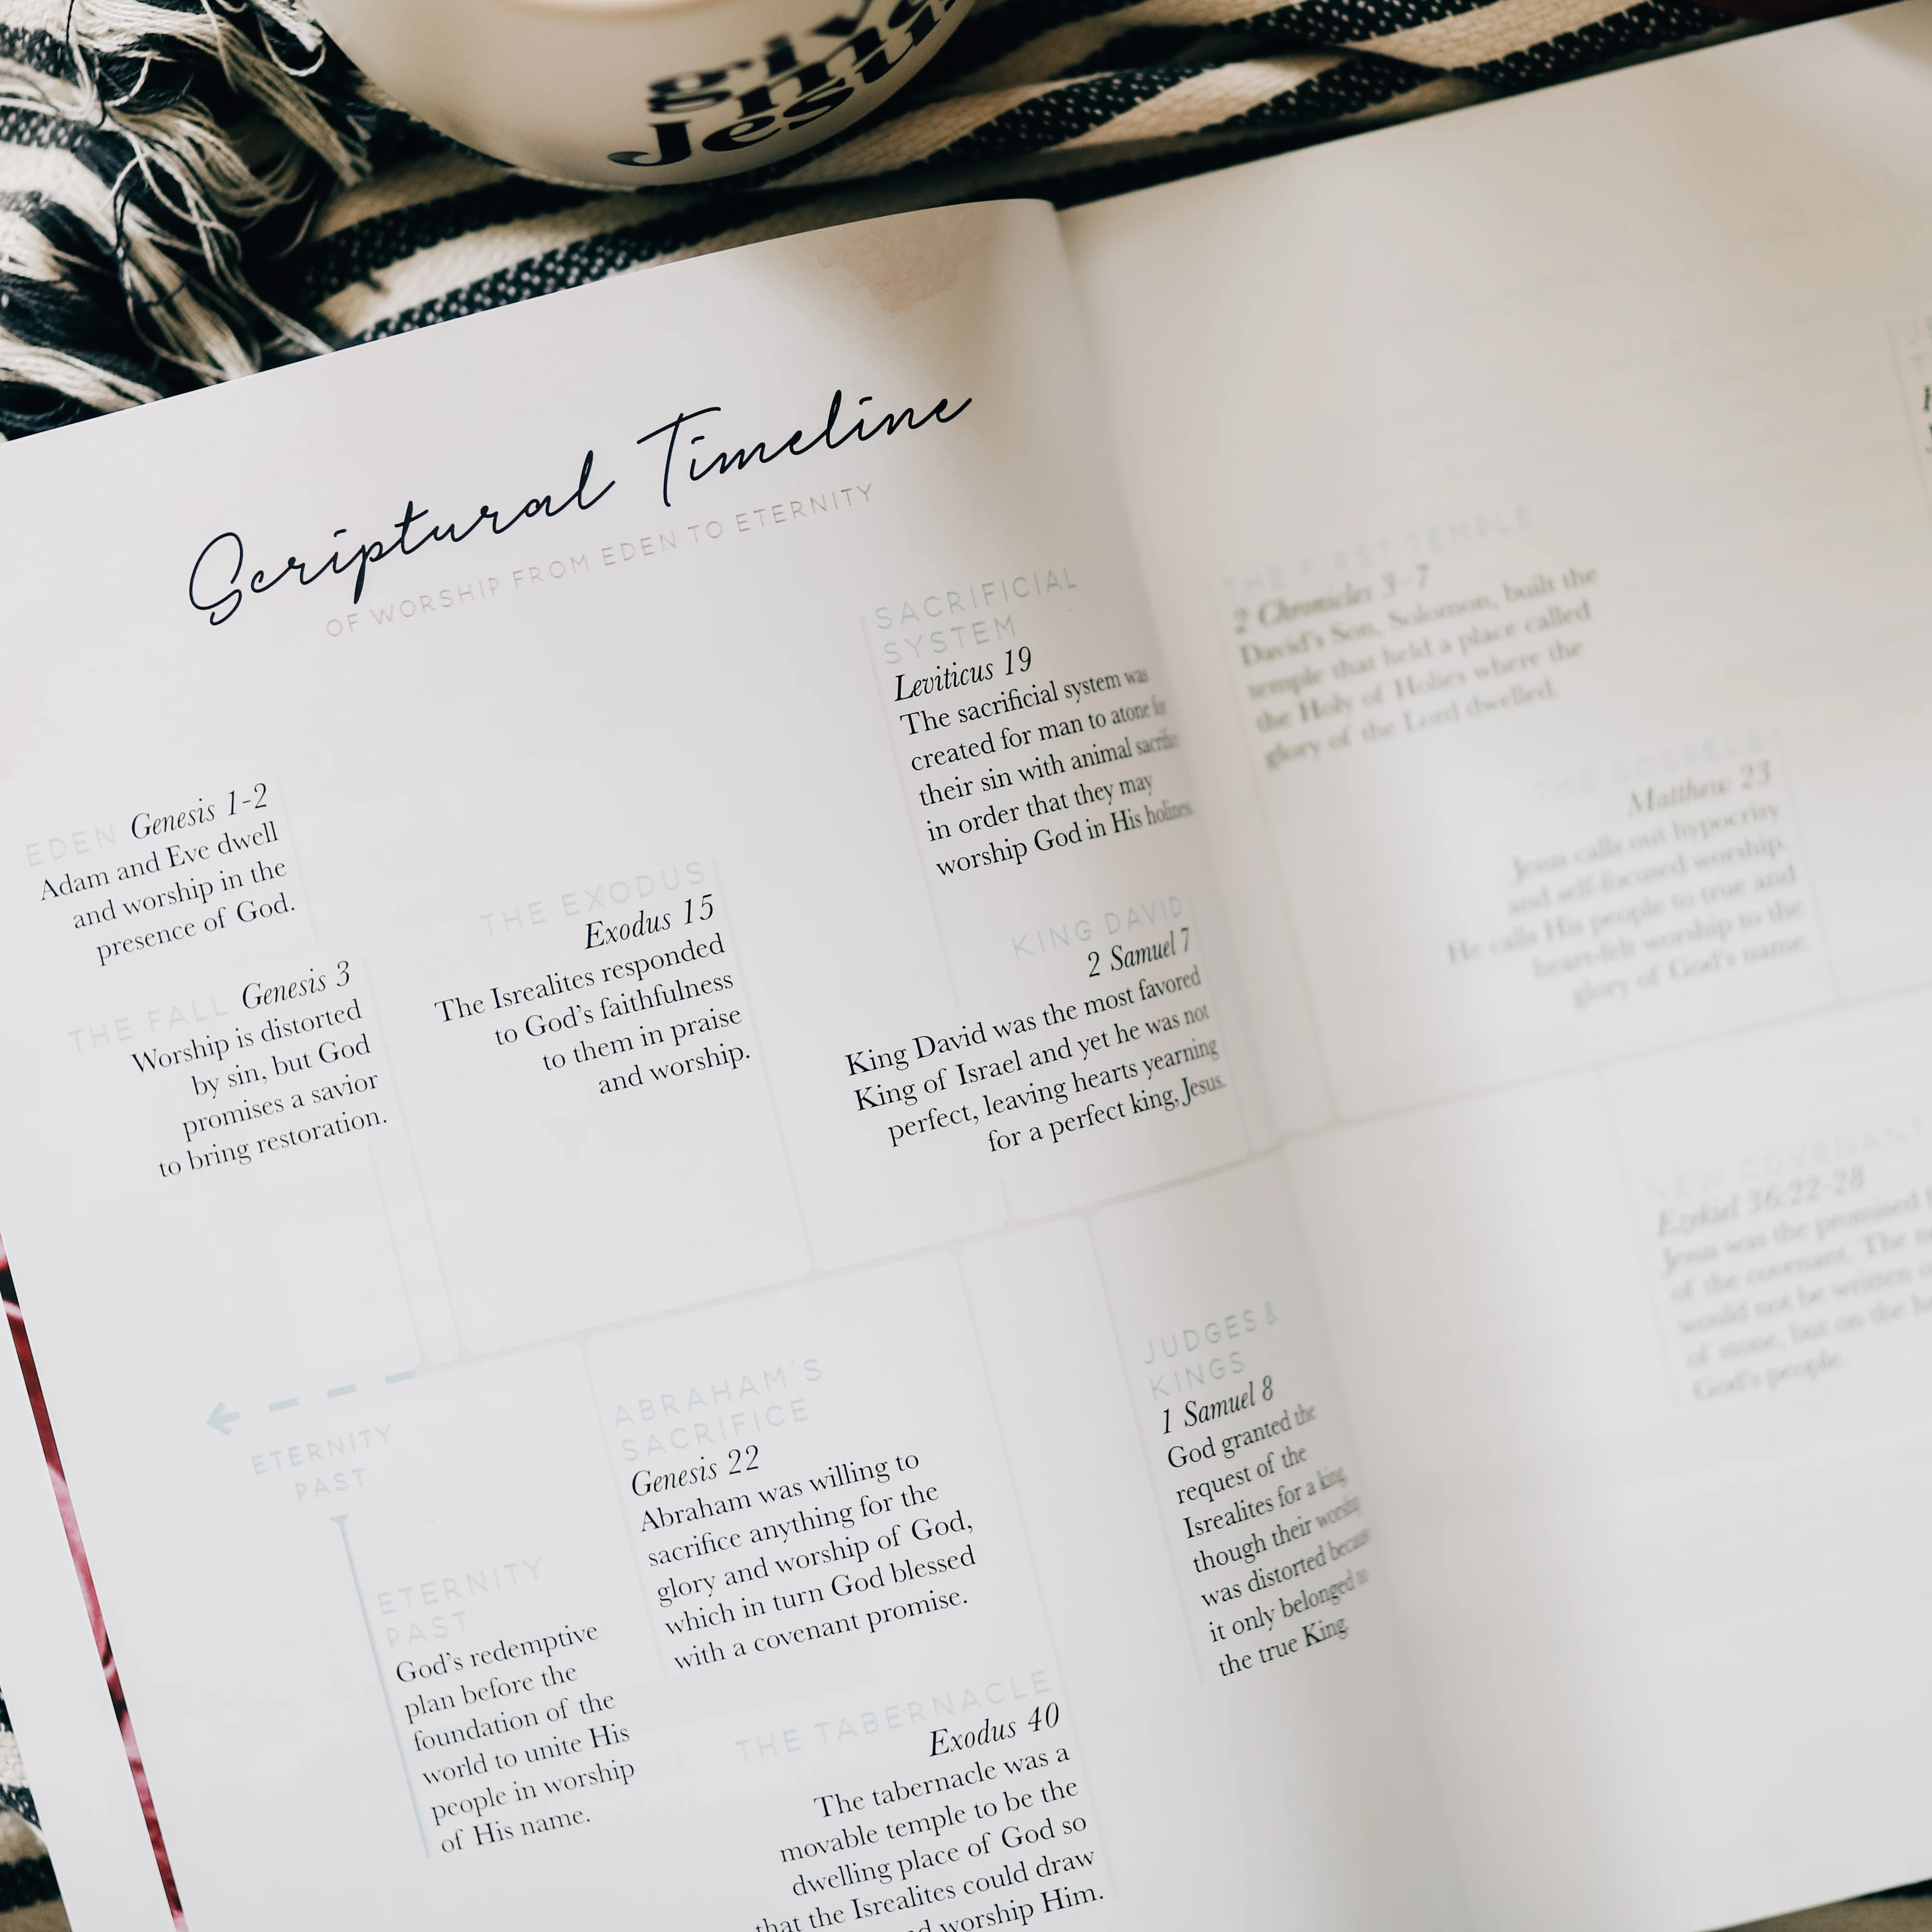 give
me
Jesus
Scriptural Timeline
OF WORSHIP FROM EDEN TO ETERNITY
EDEN Genesis 1-2
Adam and Eve dwell
and worship in the
presence of God.
THE FALL Genesis 3
Worship is distorted
by sin, but God
promises a savior
to bring restoration.
THE EXODUS
Exodus 15
The Isrealites responded
to God's faithfulness
to them in praise
and worship.
SACRIFICIAL
SYSTEM
Leviticus 19
The sacrificial system was
created for man to atone for
their sin with animal
in order that they may
worship God in His
KING DAVID
2 Samuel 7
King David was the most favored
King of Israel and yet he was not
perfect, leaving hearts yearning
for a perfect king, Jesus.
ETERNITY
PAST
ETERNITY
PAST
God's redemptive
plan before the
foundation of the
world to unite His
people in worship
of His name.
ABRAHAM'S
SACRIFICE
Genesis 22
Abraham was willing to
sacrifice anything for the
glory and worship of God,
which in turn God blessed
with a covenant promise.
THE TABERNACLE
Exodus 40
The tabernacle was a
movable temple to be the
dwelling place of God so
that the Isrealites could draw
worship Him.
JUDGES &
KINGS
1 Samuel 8
God granted the
request of the
Isrealites for a king,
though their worship
was distorted because
it only belonged to
the true King.
THE FIRST TEMPLE
2 Chronicles 3-7
David's Son, Solomon, built the
temple that held a place called
the Holy of Holies where the
glory of the Lord dwelled.
THE GOSPELS
Matthew 23
Jesus calls out hypocrisy
and self-focused worship.
He calls His people to true and
heart-felt worship to the
glory of God's name.
NEW COVENANT
Ezekiel 36:22-28
Jesus was the promised
of the covenant. The
would not be written
of stone, but on the
God's people.